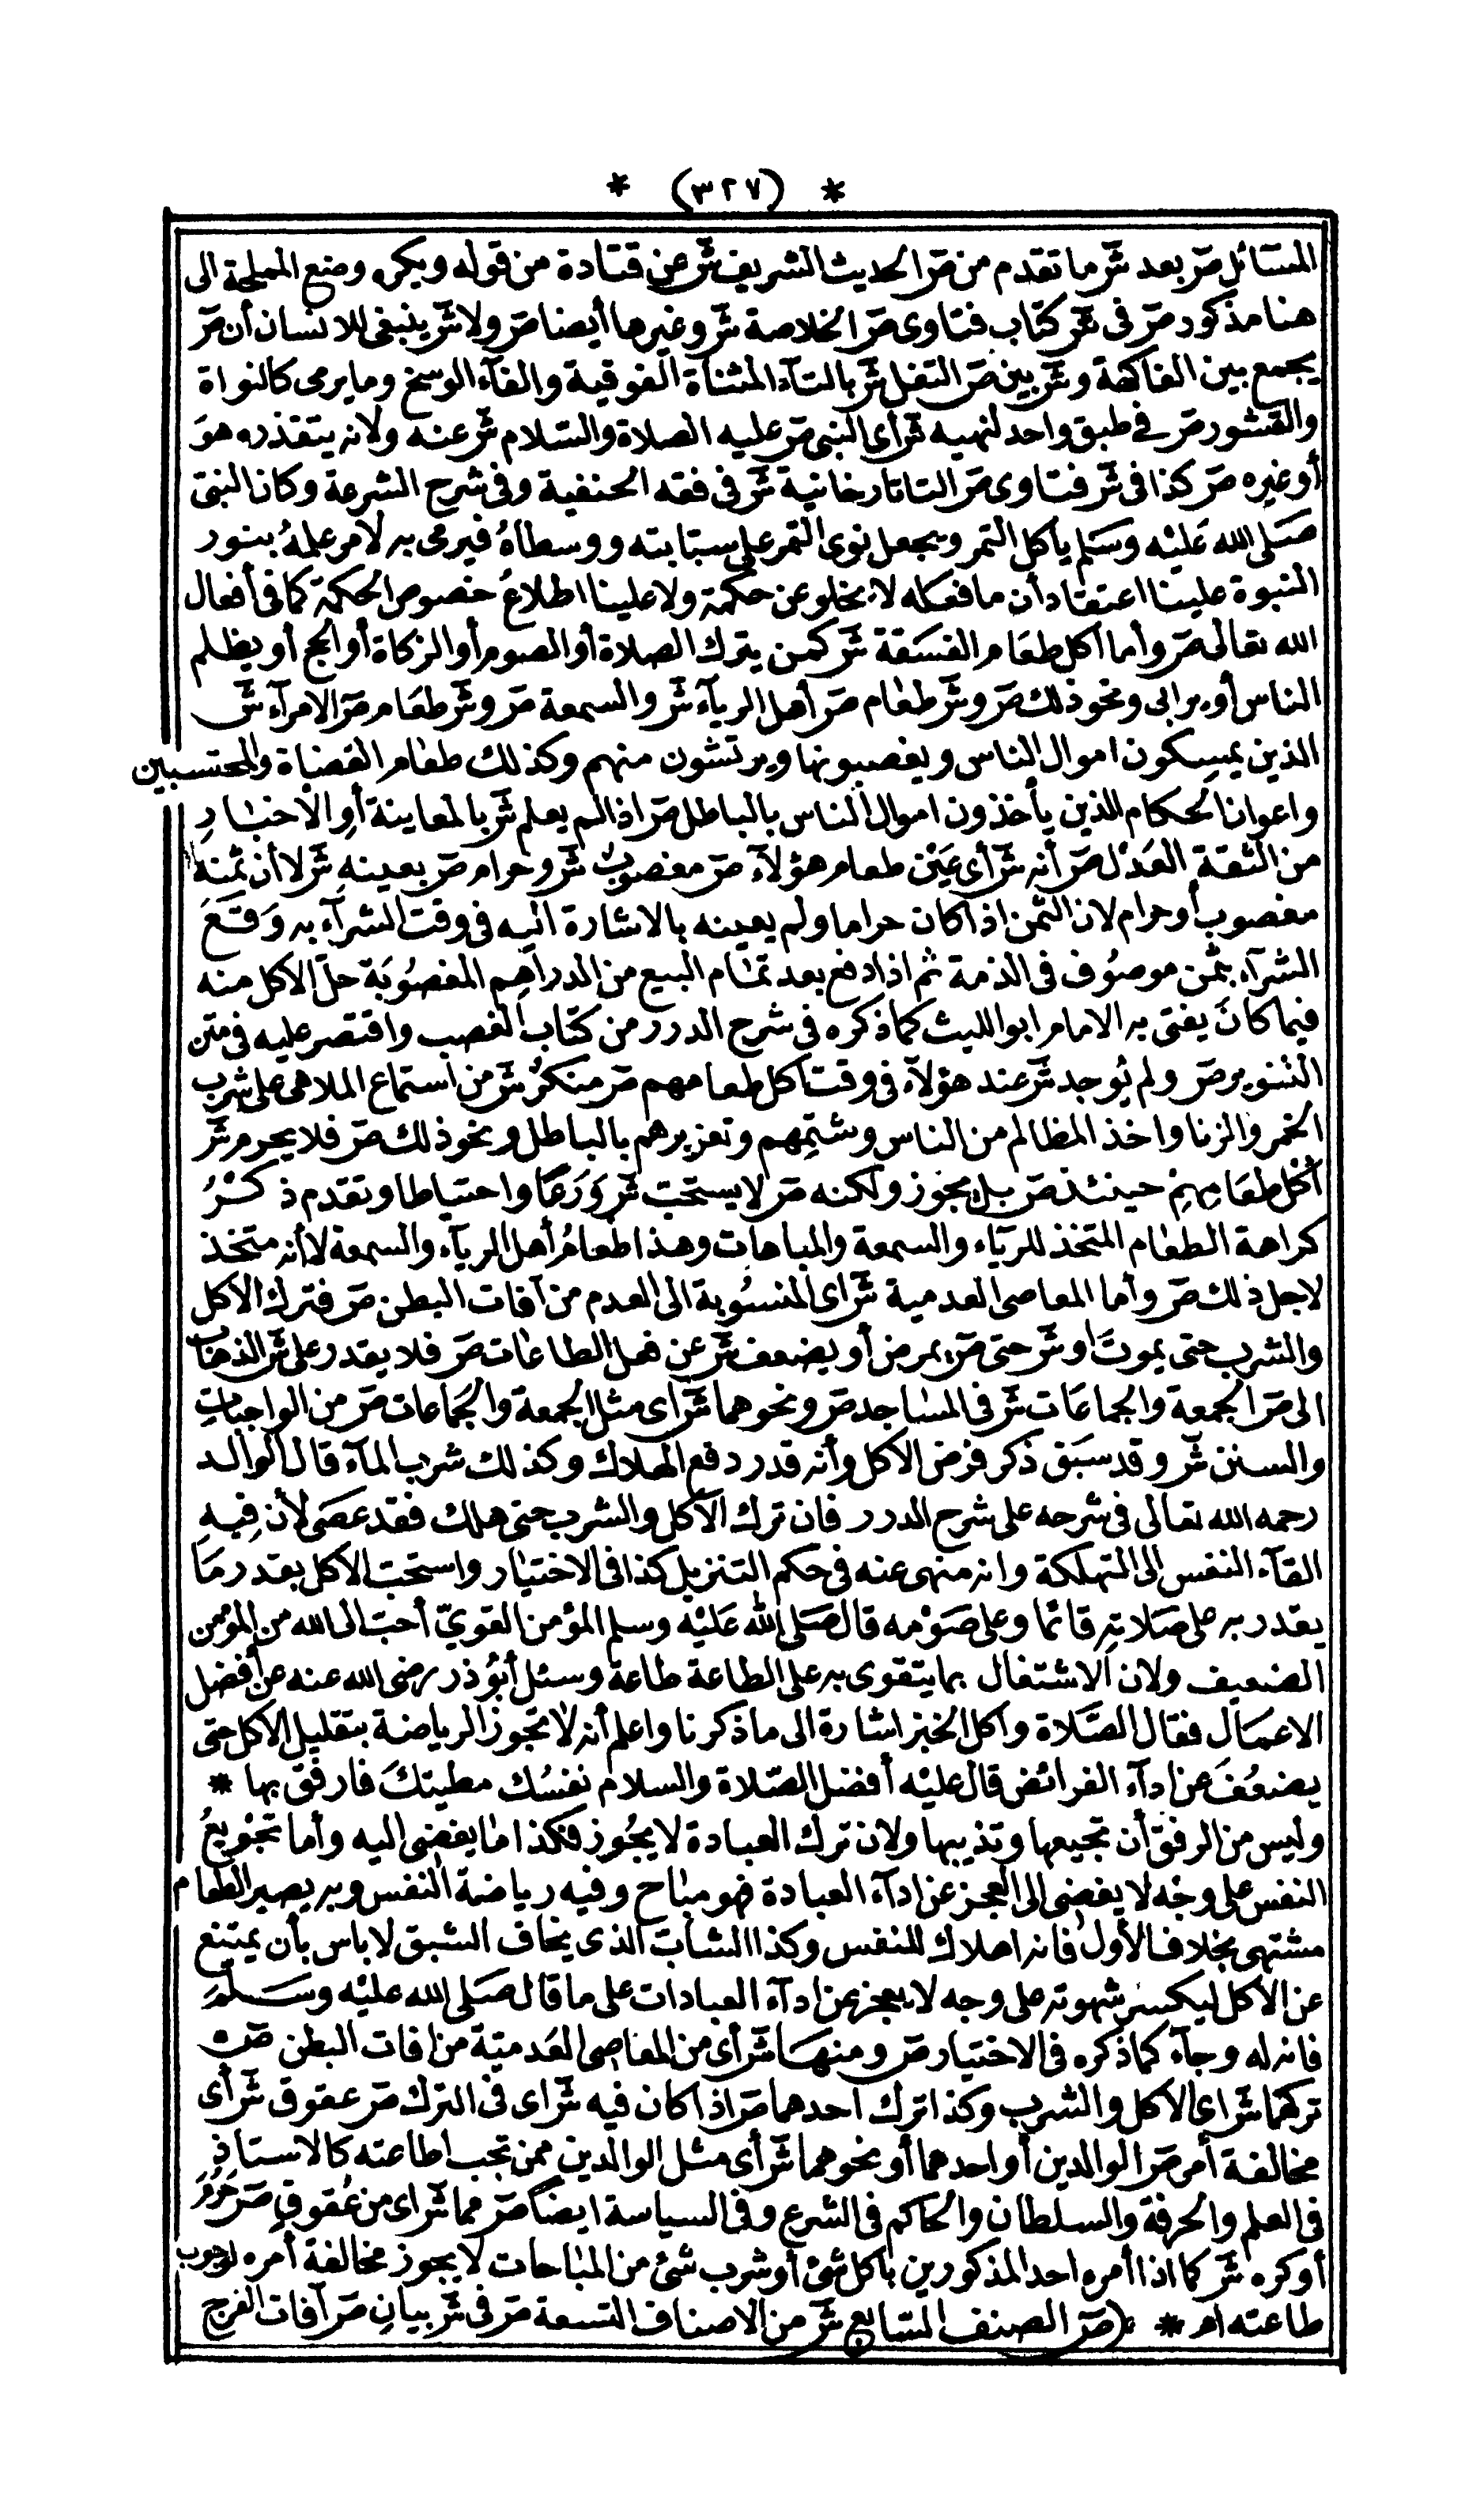 * (٣٢٧) *
المسائل صَر بعد شَر ما تقدم من صَر الحديث الشريف شَر عن قتادة من قوله ويكره وضع المملحة الى
هنا مذكور صَر فى شَر كتاب فتاوى صَر الخلاصة شَر وغيرها أيضا صَر ولا شَر ينبغى للانسان أن صَر
يجمع بين الفاكهة و شَر بين صَر التفل شَر بالتآء المثناة الفوقية والفآء الوسخ وما يرمى كالنواة
والقشور صَر فى طبق واحد لنهيه شَر أى النبى صَر عليه الصلاة والسلام شَر عنه ولانه يتقذره هوَ
أو غيره صَر كذا فى شَر فتاوى صَر التاتارخانية شَر فى فقه الحنفية وفى شرح الشرعة وكان النبى
صَلى الله عَليْه وسَلم يأكل التمر ويجعل نوى التمر على سبابته ووسطاهُ فيرمى به لامر علمهُ بنور
النبوة علينا اعتقاد أن ما فعَله لا يخلو عن حكمة ولا علينا اطلاعُ خصوص الحكمة كما فى أفعال
الله تعالى صَر وأما أكل طعَام الفسَقة شَر كمن يترك الصلاة أو الصوم أو الزكاة أو الحج أو يظلم
الناس أو يرابى ونحو ذلك صَر و شَر طعَام صَر أهل الريآء شَر والسمعة صَر و شَر طعَام صَر الامرآء شَر
الذين يمسِكون اموال الناس ويغصبونها ويرتشون منهم وكذلك طعَام القضاة والمحتسبين
واعوان الحكام الذين يأخذون اموال الناس بالباطل صَر اذا لم يعلم شَر بالمعاينة أو الاخبَارِ
من الثقة العَدْل صَر أنه شَر أى عَيْن طعام هؤلآء صَر مغصوبٌ شَر و حرام صَر بعينهِ شَر لا أن ثمنهُ
مغصوب أو حرام لان الثمن اذا كان حراما ولم يعينه بالاشارة اليه فى وقت الشرآء به وَقعَ
الشرآء بثمن موصُوف فى الذمة ثم اذا دفع بعد تمَام البيع من الدراهِم المغصُوبَة حلّ الاكل منه
فيما كانَ يفتى به الامام ابو الليث كما ذكره فى شرح الدرر من كتاب الغصب واقتصر عليه فى متن
التنوير صَر ولم يُوجد شَر عند هؤلآء فى وقت أكل طعامهم صَر منكرٌ شَر من استماع الملاهى على شرب
الخمر والزنا واخذ المظالم من الناس وشتمِهم وتعزيرهم بالباطل ونحو ذلك صَر فلا يحرم شَر
أكل طعَامهِمْ حينئذ صَر بل يجوز ولكنه صَر لا يستحبّ شَر وَرَعًا واحتياطا وتقدم ذكرُ
كراهة الطعَام المتخذ للريَاء والسمعة والمباهات وهذا طعامُ أهل الريآء والسمعة لا أنه متخذ
لاجل ذلك صَر وأما المعاصى العدمية شَر أى المنسُوبة الى العدم من آفات البطن صَر فترك الأكل
والشرب حتى يموتَ أو شَر حتى صَر يمرض أو يضعف شَر عن فعل الطاعَات صَر فلا يقدر على شَر الذهَاب
الى صَر الجمعة والجماعَات شَر فى المسَاجد صَر ونحوهما شَر أى مثل الجمعة والجَمَاعات صَر من الواجبَاتِ
والسنن شَر وقد سَبَق ذكر فرض الاكل وأنه قدر دفع الهلاك وكذلك شرب المآء قال الوالد
رحمه الله تعالى فى شرحه على شرح الدرر فان ترك الأكل والشرب حتى هلك فقد عصَى لأن فِيهِ
القآء النفس الى التهلكة وانه منهى عنه فى حكم التنزيل كذا فى الاختيَار واستحبّ الاكل بقدر مَا
يقدر به على صَلاته قائما وعلى صَوْمه قال صَلى الله عَليْه وسلم المؤمن القوىّ أحبّ الى الله من المؤمن
الضعيف ولان الاشتغال بما يتقوى به على الطاعة طاعة وسئل أبُو ذر رضى الله عنه عن أفضل
الاعمَال فقال الصَّلاة وأكل الخبز اشارة الى ما ذكرنا واعلم أنه لا تجوز الرياضة بتقليل الأكل حتى
يضعُفَ عن ادآء الفرائض قال عليْه أفضل الصّلاة والسلام نفسُك مطيتكَ فارفق بها *
وليس من الرفق أن تجيعها وتذيبها ولان ترك العبادة لا يجُوز فكذا مَا يفضى اليه وأما تجويعُ
النفس على وجْه لا يفضى الى العجز عن ادآء العبادة فهو مبَاح وفيه رياضة النفس وبه يصير الطعَام
مشتهى بخلاف الأول فانه اهلاك للنفس وكذا الشابّ الذى يخاف الشبق لا باس بأن يمتنع
عن الاكل ليكسر شهوته على وجه لا يعجز عن ادآء العبادات على ما قال صَلى الله عليْه وسَلمَ
فانه له وجآء كما ذكره فى الاختيار صَر ومنهَا شَر أى من المعَاصى العَدميّة من افات البطن صَر
تركهما شَر أى الاكل والشرب وكذا ترك احدهما صَر اذا كان فيه شَر اى فى الترك صَر عقوق شَر أى
مخالفة أمر صَر الوالدين أو احدهما أو نحوهما شَر أى مثل الوالدين ممن تجب اطاعته كالاستاذِ
فى العلم والحرفة والسلطان والحاكم فى الشرع وفى السياسة ايضًا صَر مما شَر اى من عُقوقٍ صَر حَرُمَ
أو كره شَر كما اذا أمره احد المذكورين بأكل شئ أو شرب شئ من المبَاحات لا يجوز مخالفة أمره لوجوب
طاعته امر * (صَر الصنف السابع شَر من الاصناف التسعة صَر فى شَر بيانِ صَر آفات الفرج